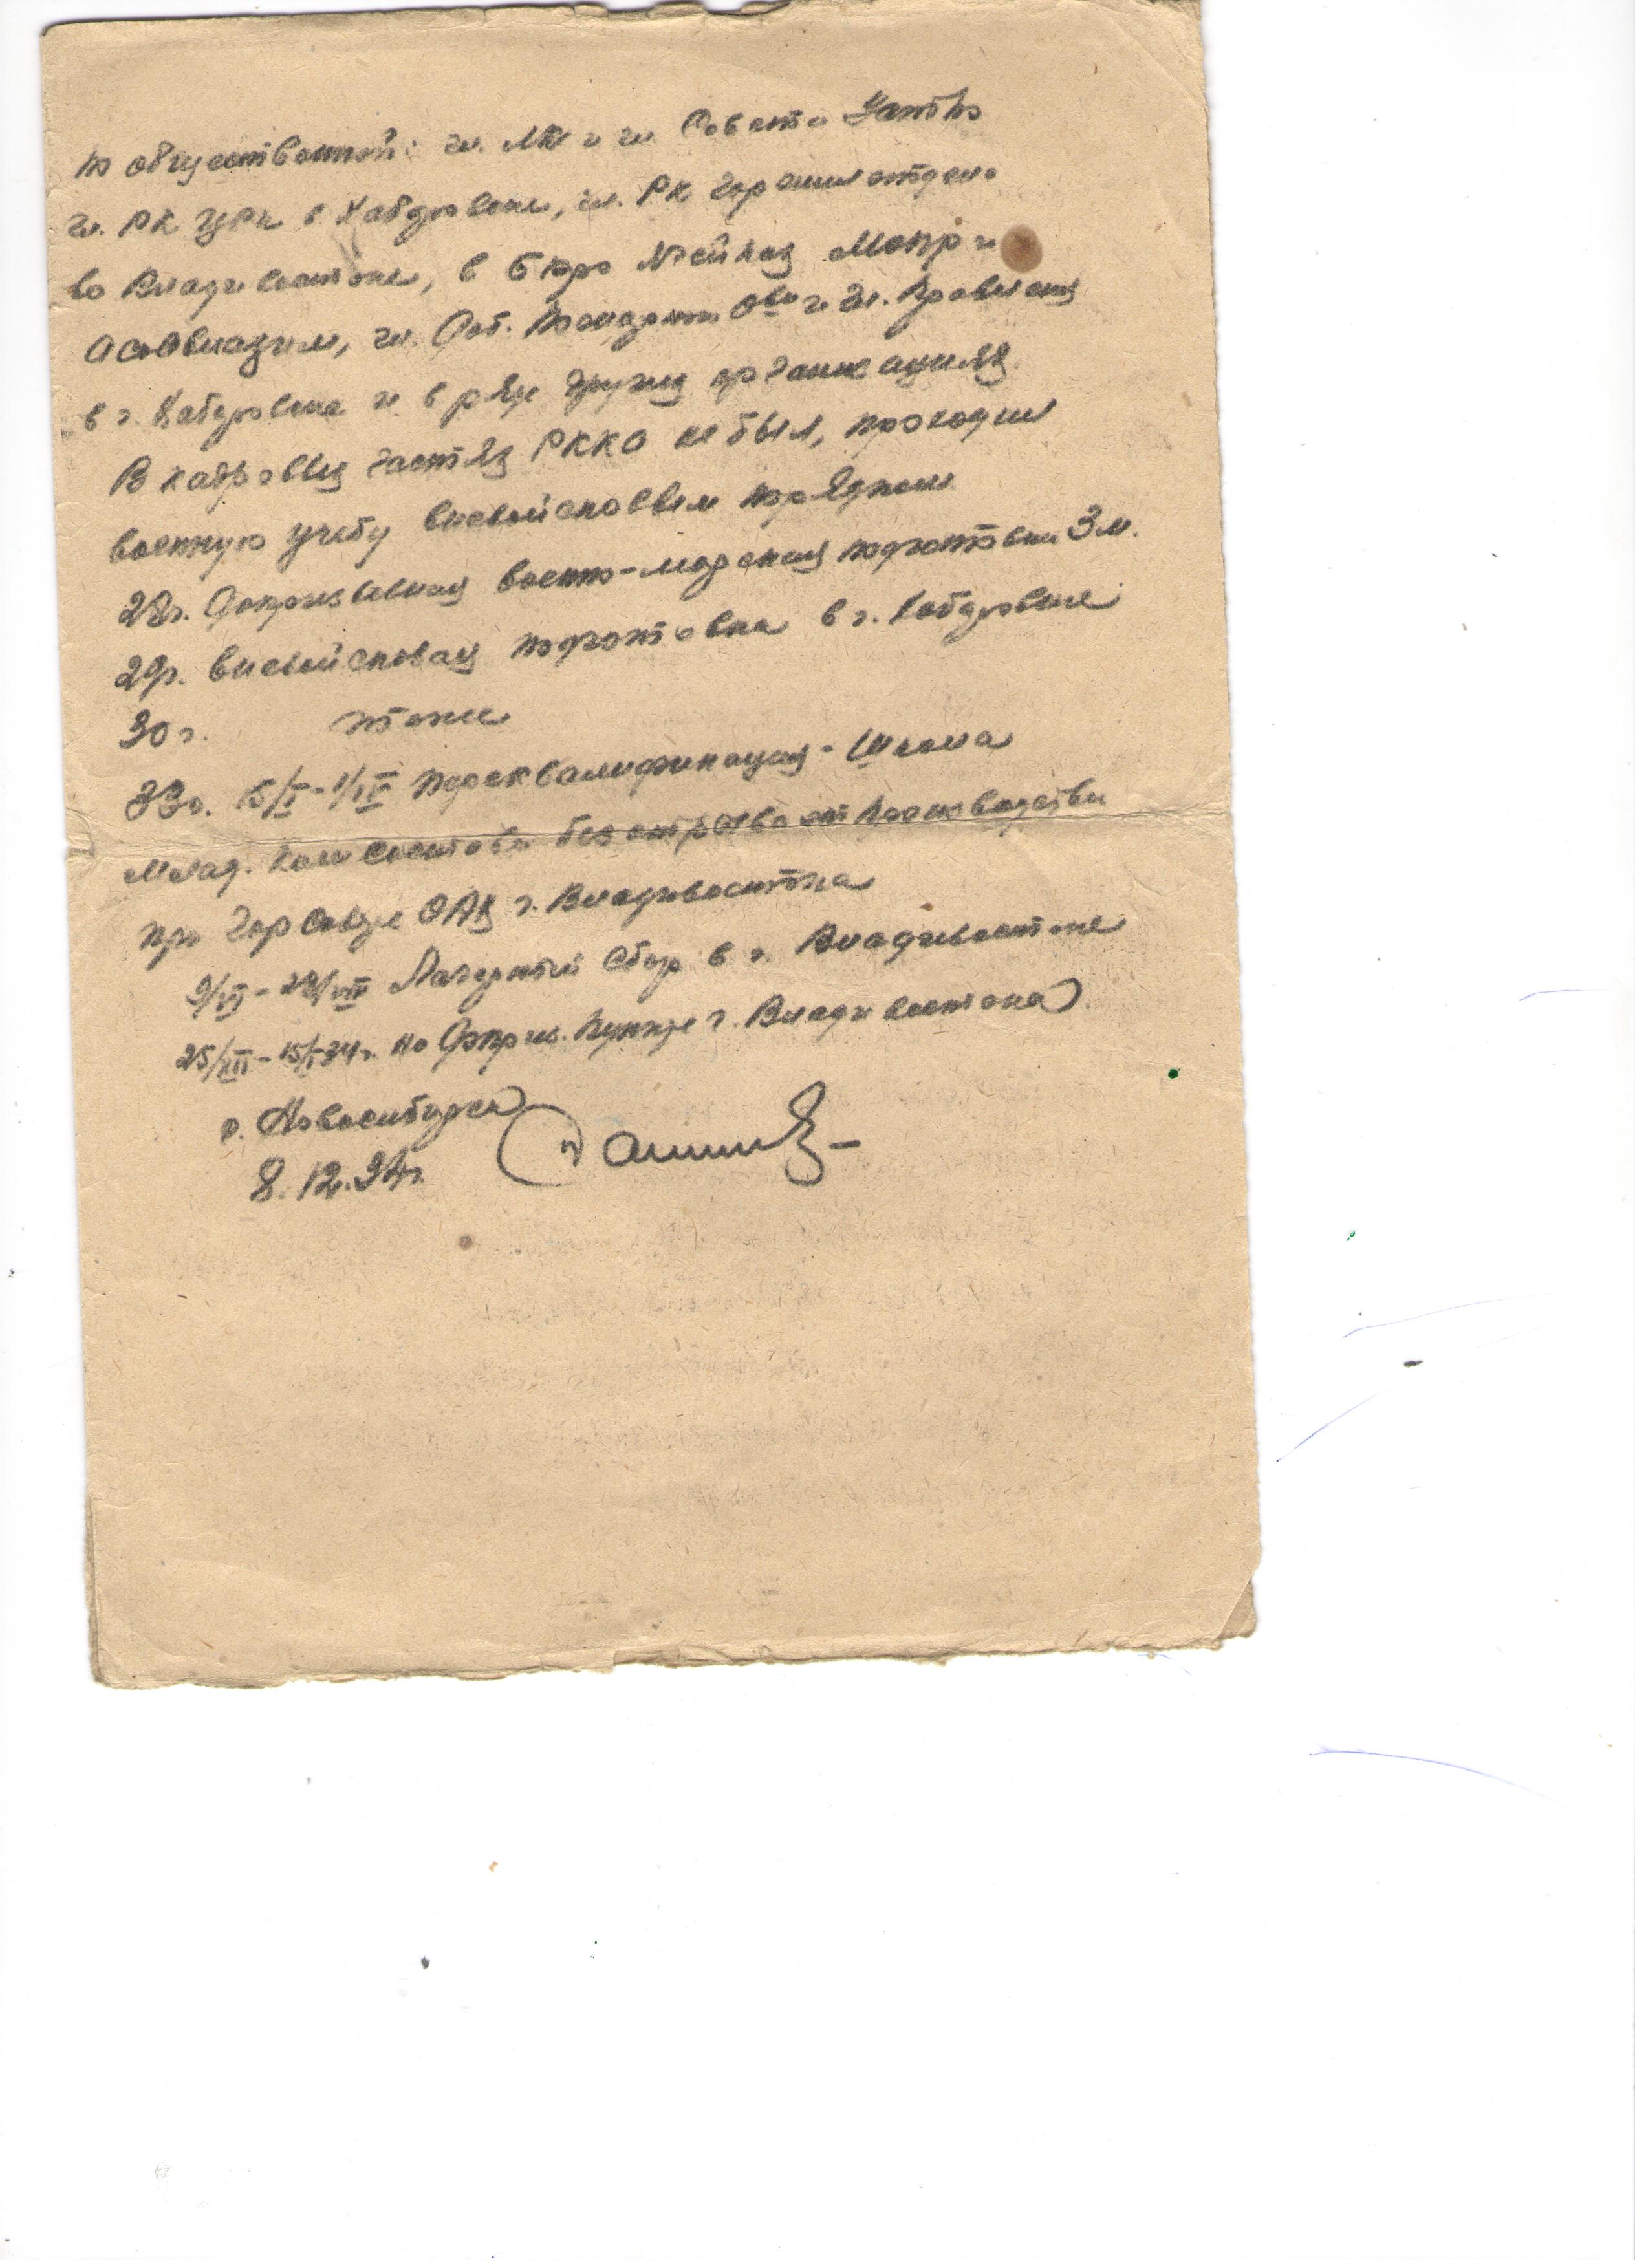 по общественной: чл. МК и чл. Совета
чл. РК ЦРК в Хабаровске, чл. РК Горснаботдела
во Владивостоке, в бюро ячейках Мопр и
Осоавиахим, чл. Доб. Пожарн. О-ва и чл. Правления
в г. Хабаровске и в ряде других организациях.
В кадровых частях РККА не был, проходил
военную учебу вневойсковым порядком
28г. Допризывная военно-морская подготовка 3 м.
29г. вневойсковая подготовка в г. Хабаровске
30г. тоже
33г. 15/I - 1/IV переквалификация - Школа
Млад. Комсостава без отрыва от производства
при Горсовете ОАХ г. Владивостока
9/VI - 28/VIII Лагерный сбор в г. Владивостоке
25/XII - 15/I 34г. на Доприз. Пункте г. Владивостока
г. Новосибирск
8.12.34г.